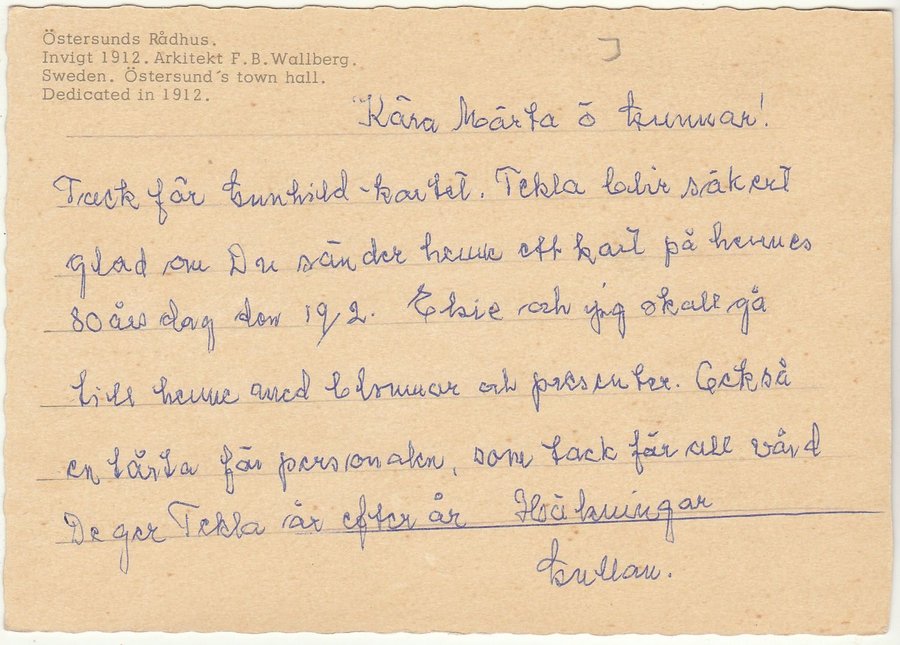 Östersunds Rådhus.
Invigt 1912. Arkitekt F.B.Wallberg.
Sweden. Östersund´s town hall.
Dedicated in 1912.
Kära Märta ö Gunnar!
Tack för Gunhild-kortet. Tekla blir säkert
glad om Du sänder henne ett kort på hennes
80års dag den 19/2. Elsie och jag skall gå
till henne med blommor och presenter. Också
en tårta för personalen, som tack för all vård
De ger Tekla år efter år Hälsningar
Gullan.